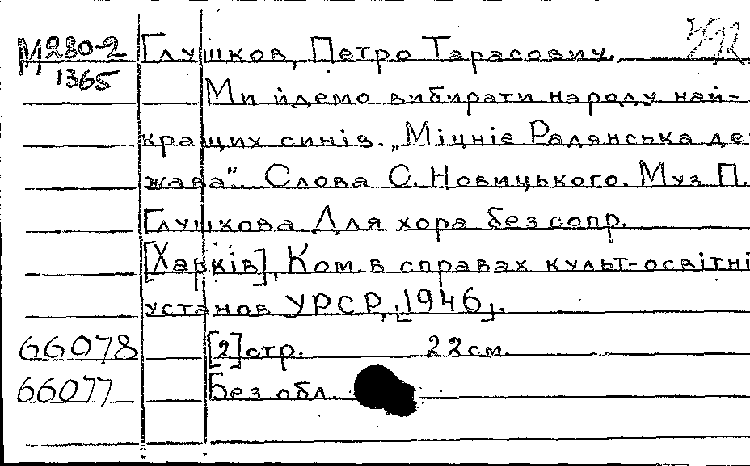 М280-2 Глушков, Петро Тарасович.
1365
Ми йдемо вибирати народу най-
кращих синів. „Міцніє Радянська де
жава". Слова С. Новицького. Муз П.
Глушкова Для хора без сопр.
[Харків], Ком. в справах культ-освітні
установ УРСР, [1946].
66078 [2] стр. 22 см.
66077 Без обл.